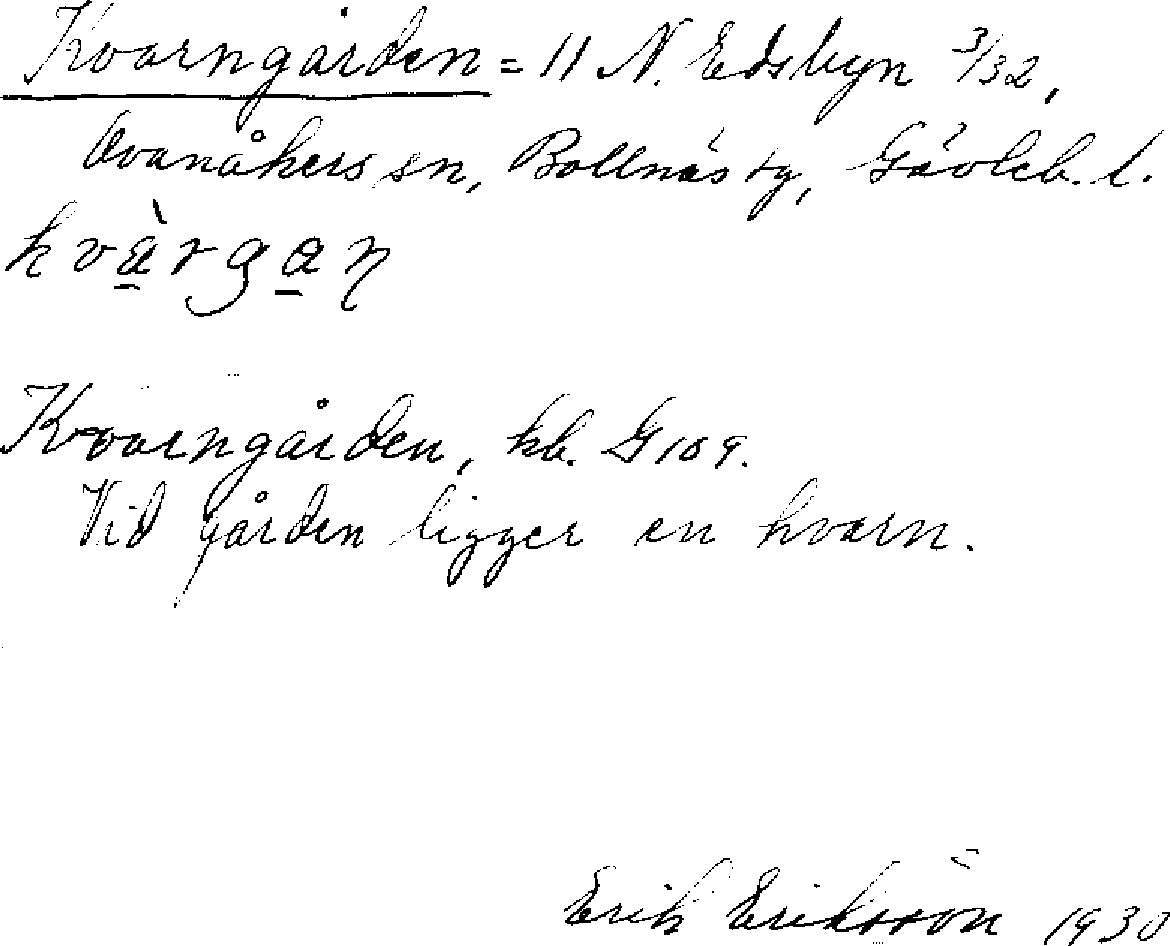 Kvarngården = 11 N. Edsbyn 3/32,
Ovanåkers sn, Bollnäs tg, Gävleb. l.
kvàrgan
Kvarngården, kb. G 109.
Vid gården ligger en kvarn.
Erik Eriksson 1930